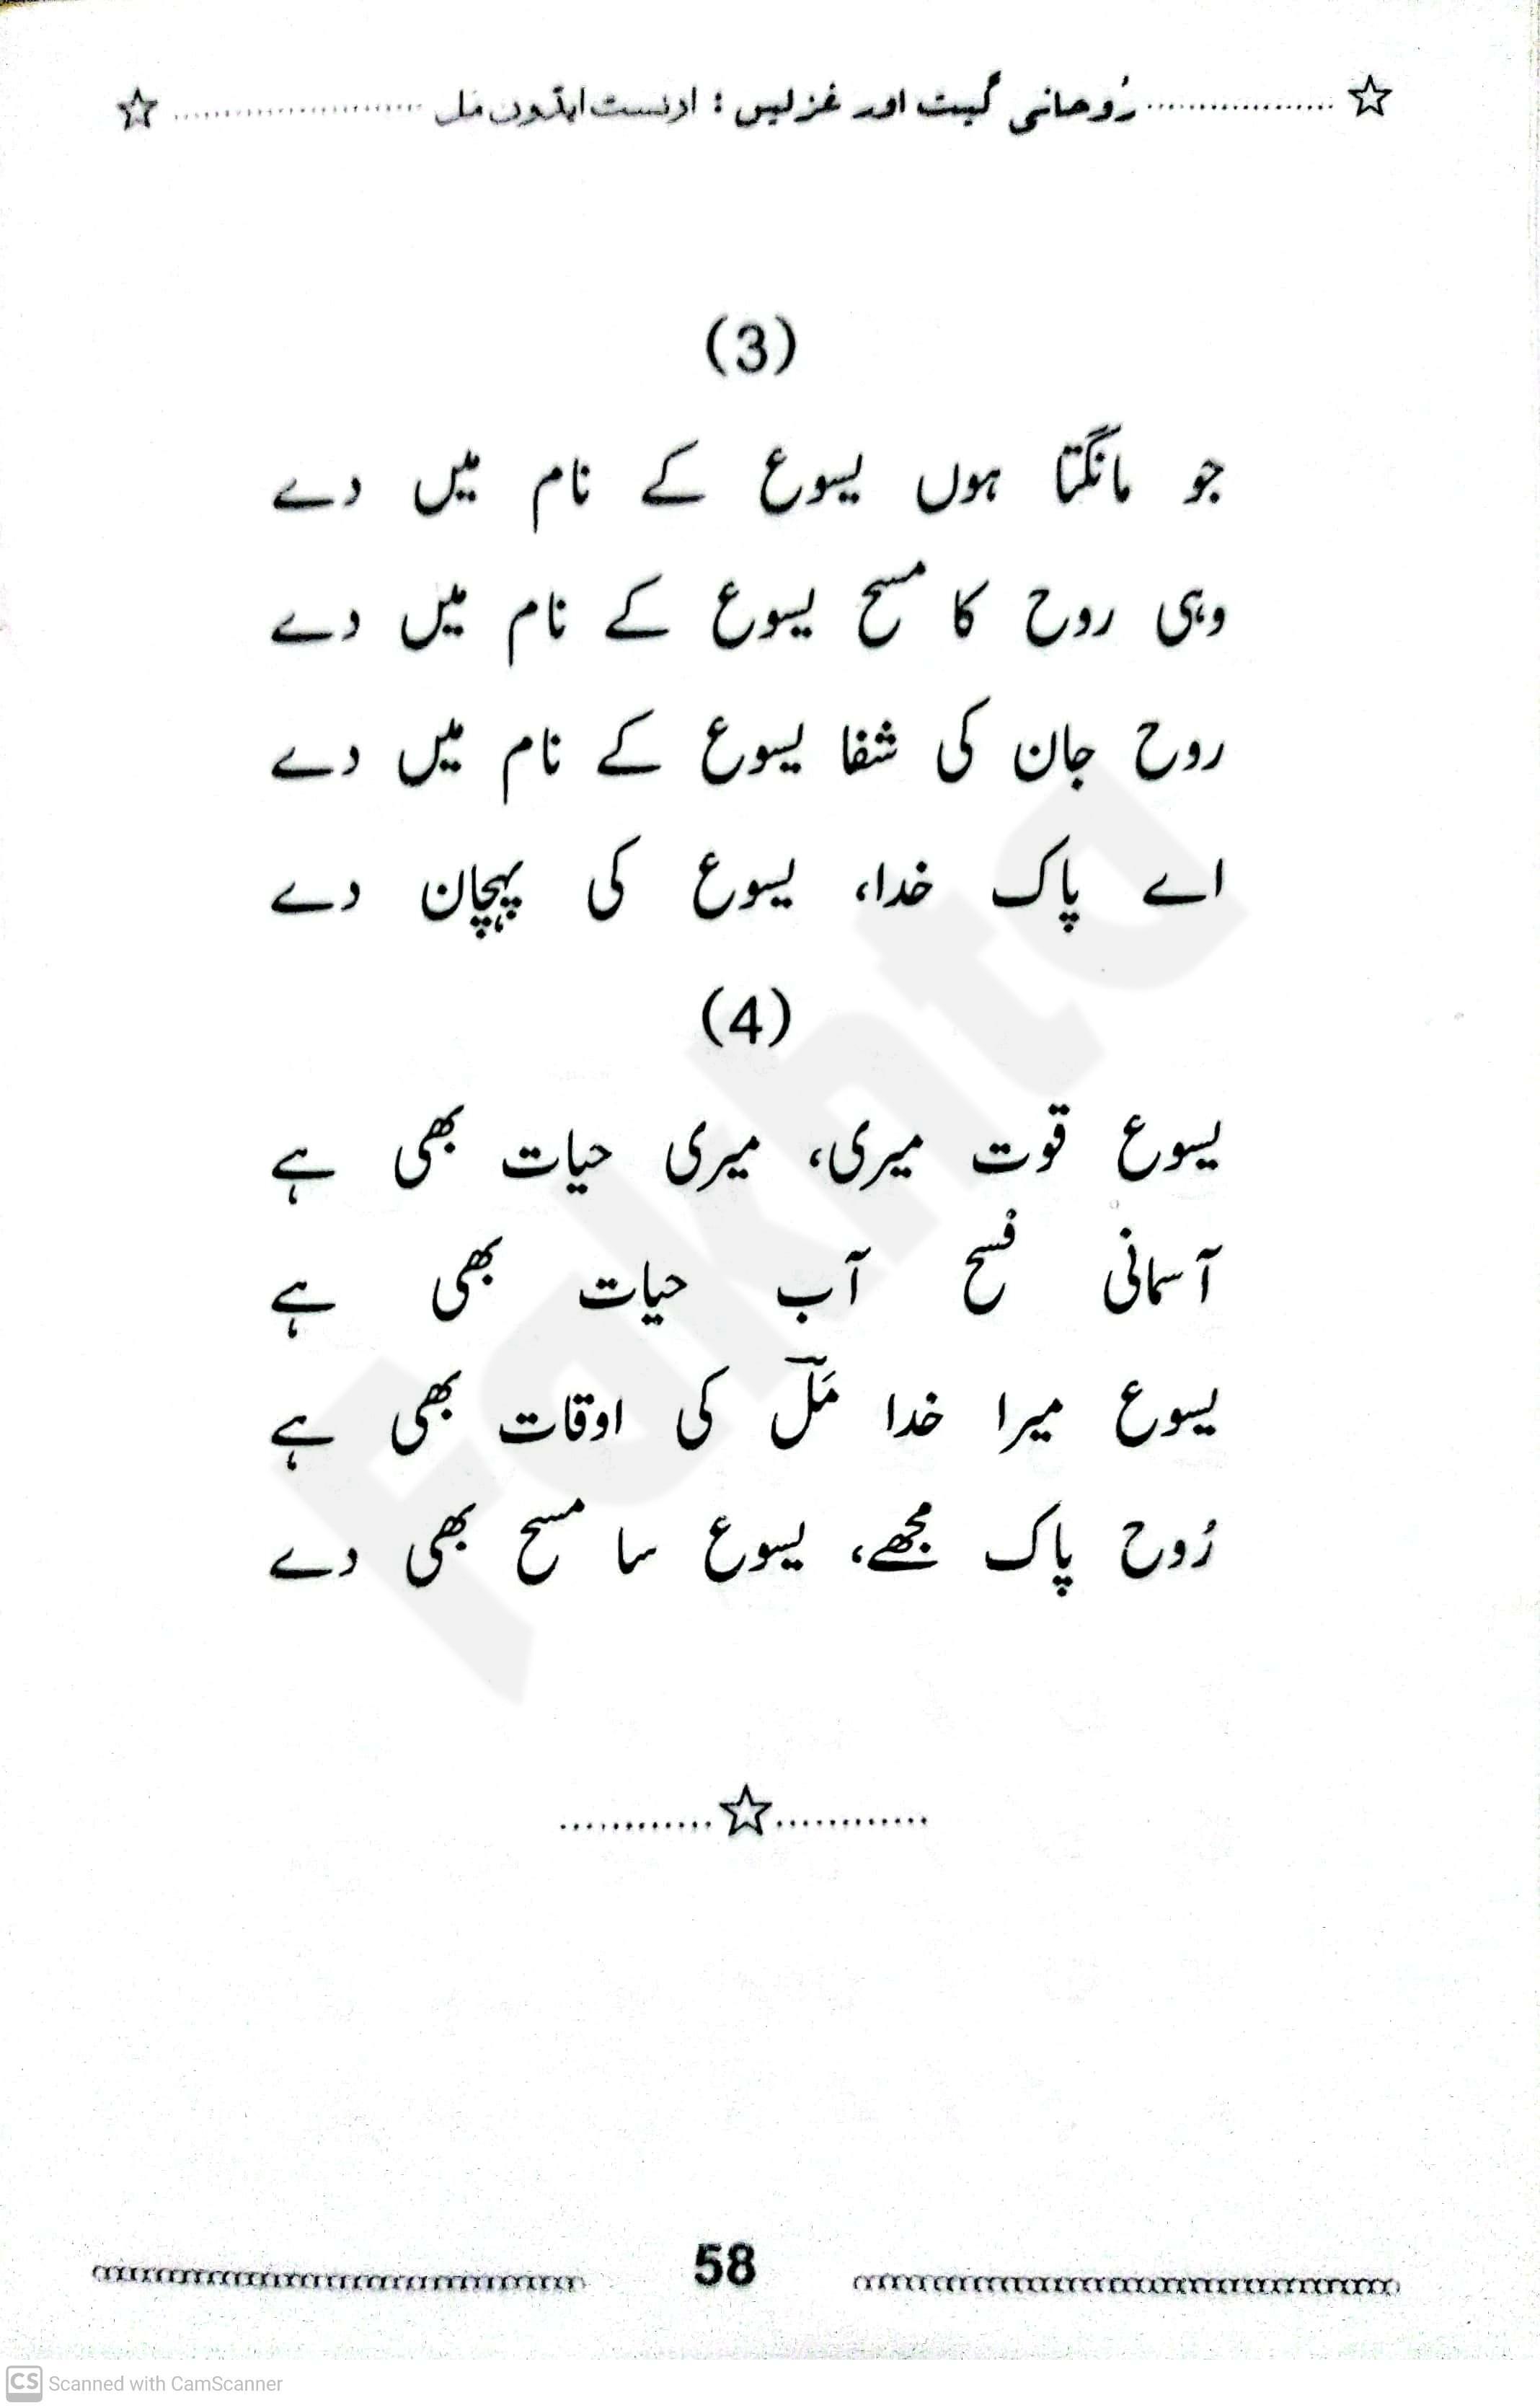 رُوحانی گیت اور غزلیں : ارنسٹ ایڈون مَل
(3)
جو مانگتا ہوں یسوع کے نام میں دے
وہی روح کا مسح یسوع کے نام میں دے
روح جان کی شفا یسوع کے نام میں دے
اے پاک خدا، یسوع کی پہچان دے
(4)
یسوع قوت میری، میری حیات بھی ہے
آسمانی فسح آب حیات بھی ہے
یسوع میرا خدا مَلؔ کی اوقات بھی ہے
رُوح پاک مجھے، یسوع سا مسح بھی دے
58
Fakhta
CS Scanned with CamScanner